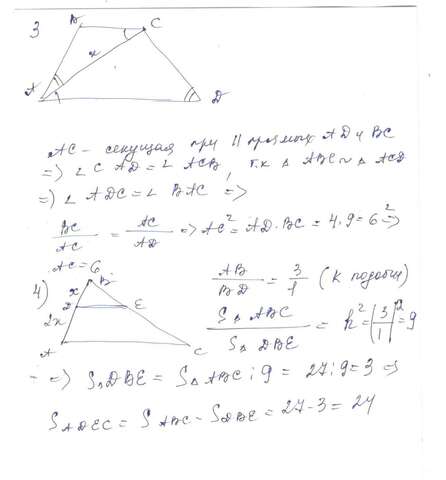 3
B
C
x
A
D
AC - секущая при || прямых AD и BC
=> ∠CAD = ∠ACB, т.к. △ABC ~ △ACD
=> ∠ADC = ∠BAC =>
BC/AC = AC/AD => AC² = AD·BC = 4·9 = 6² =>
AC = 6
4)
B
x
D
E
2x
A
C
AB/BD = 3/1 (К подобия)
S△ABC/S△DBE = k² = (3/1)² = 9
=> S△DBE = S△ABC : 9 = 27 : 9 = 3 =>
SADEC = SABC - SDBE = 27 - 3 = 24